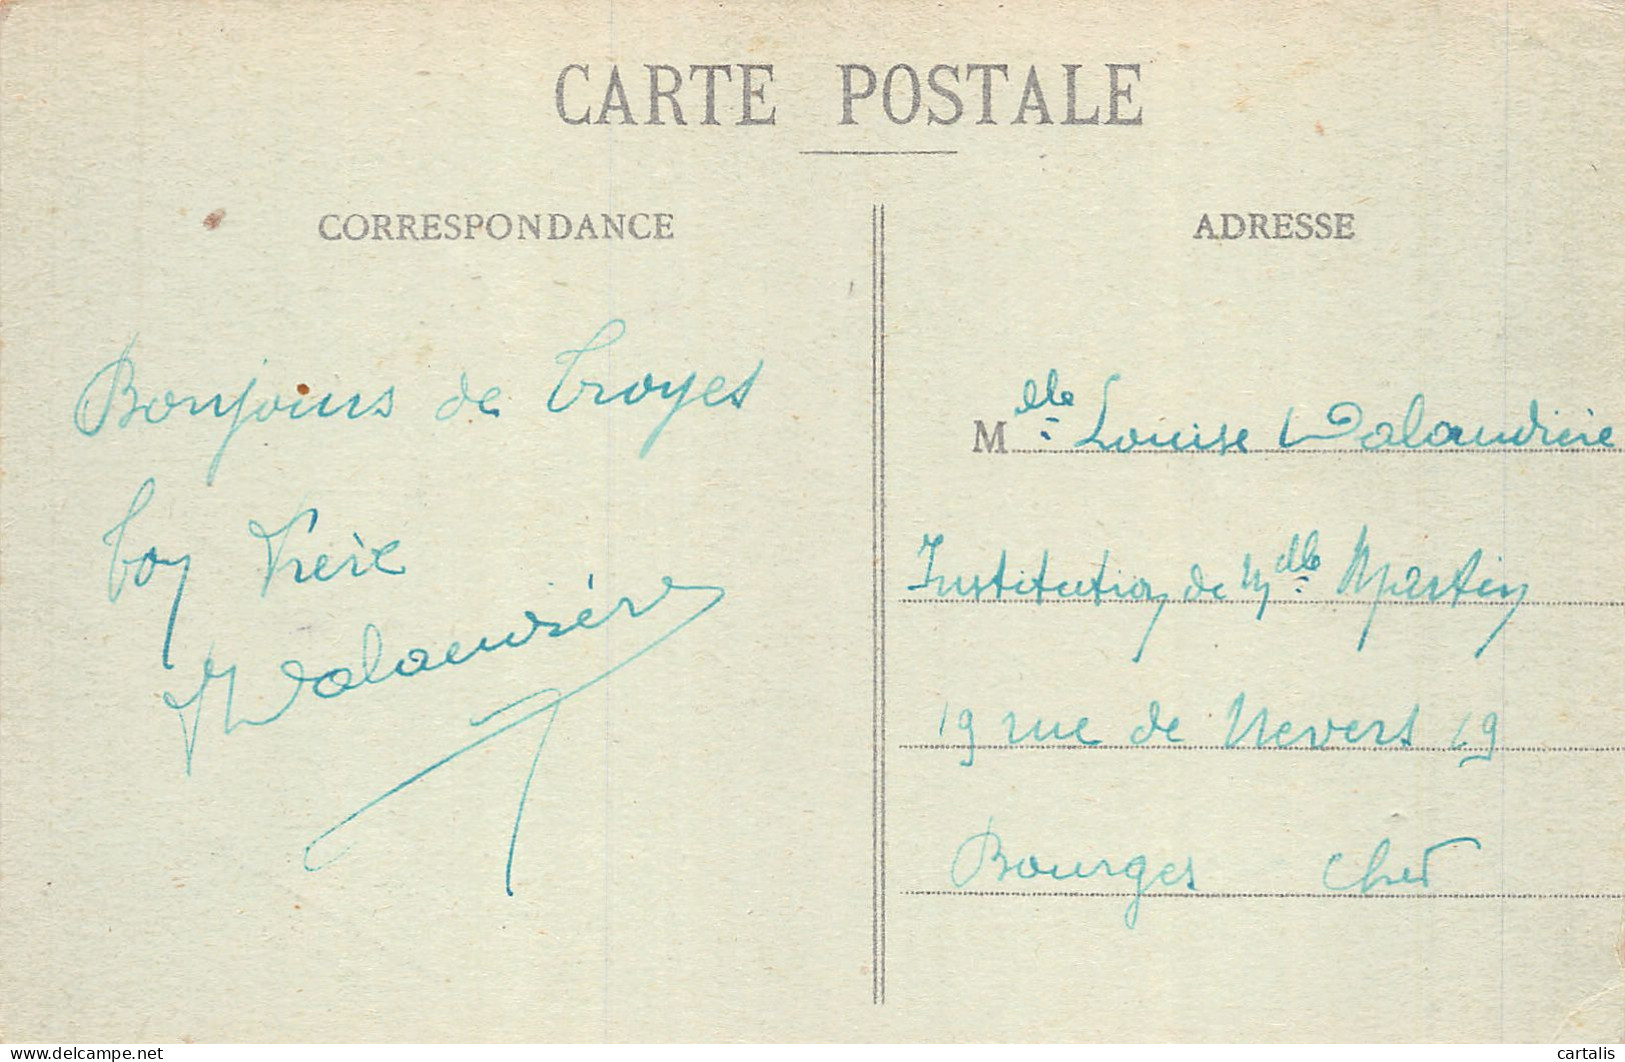 CARTE POSTALE
CORRESPONDANCE
Bonjours de Troyes
Ton Frère
ADRESSE
Mlle Louise Dalaudière
Institution de Mdlle Martin
19 rue de Nevers 19
Bourges Cher
www.delcampe.net
cartalis